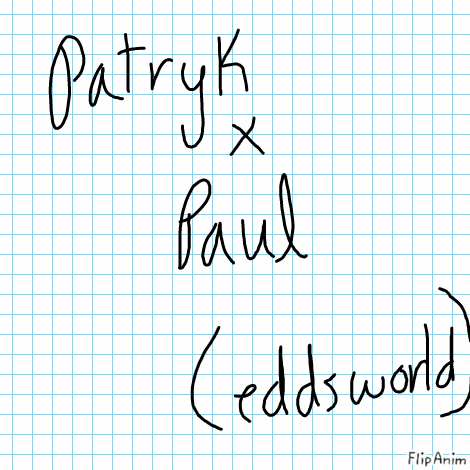 Patryk
x
Paul
(eddsworld)
FlipAnim